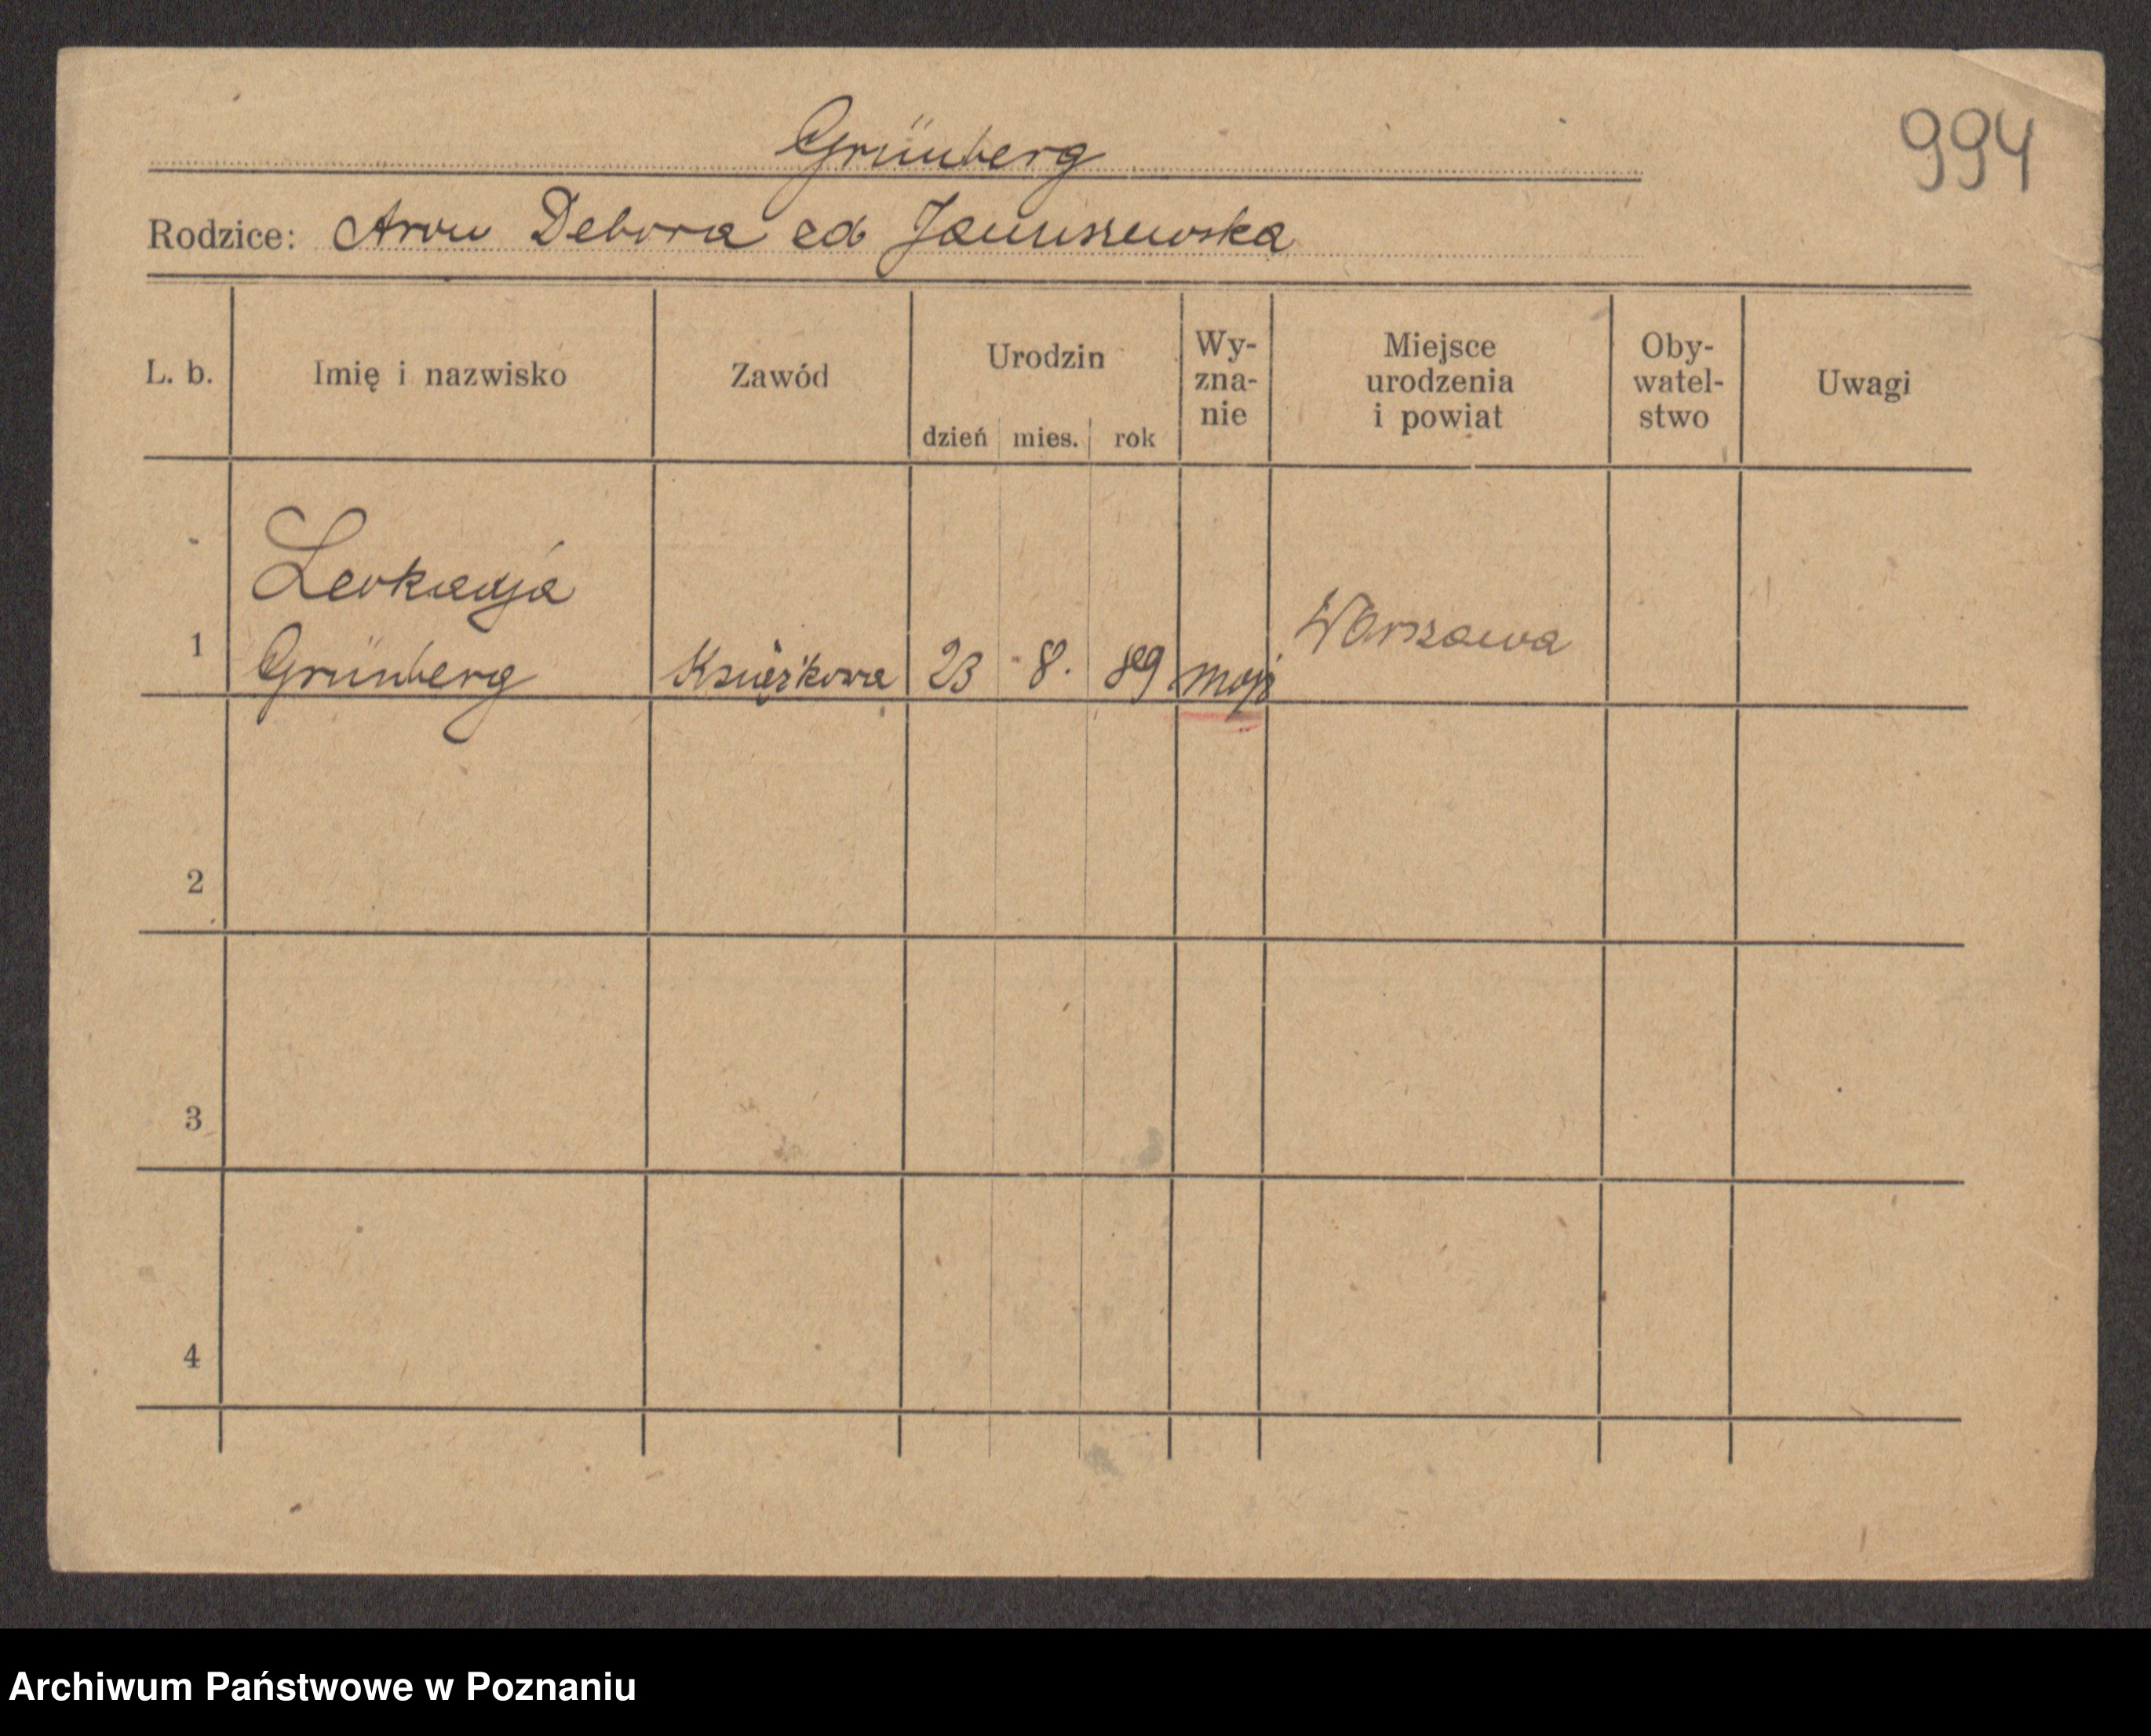 Grünberg
994
Rodzice: Aron Debora ed Januszewska
L. b. Imię i nazwisko Zawód Urodzin dzień mies. rok Wy-zna-nie Miejsce urodzenia i powiat Oby-watel-stwo Uwagi
Leokadja
1 Grünberg Książkowa 23 8. 89 mojż Warszawa
2
3
4
Archiwum Państwowe w Poznaniu